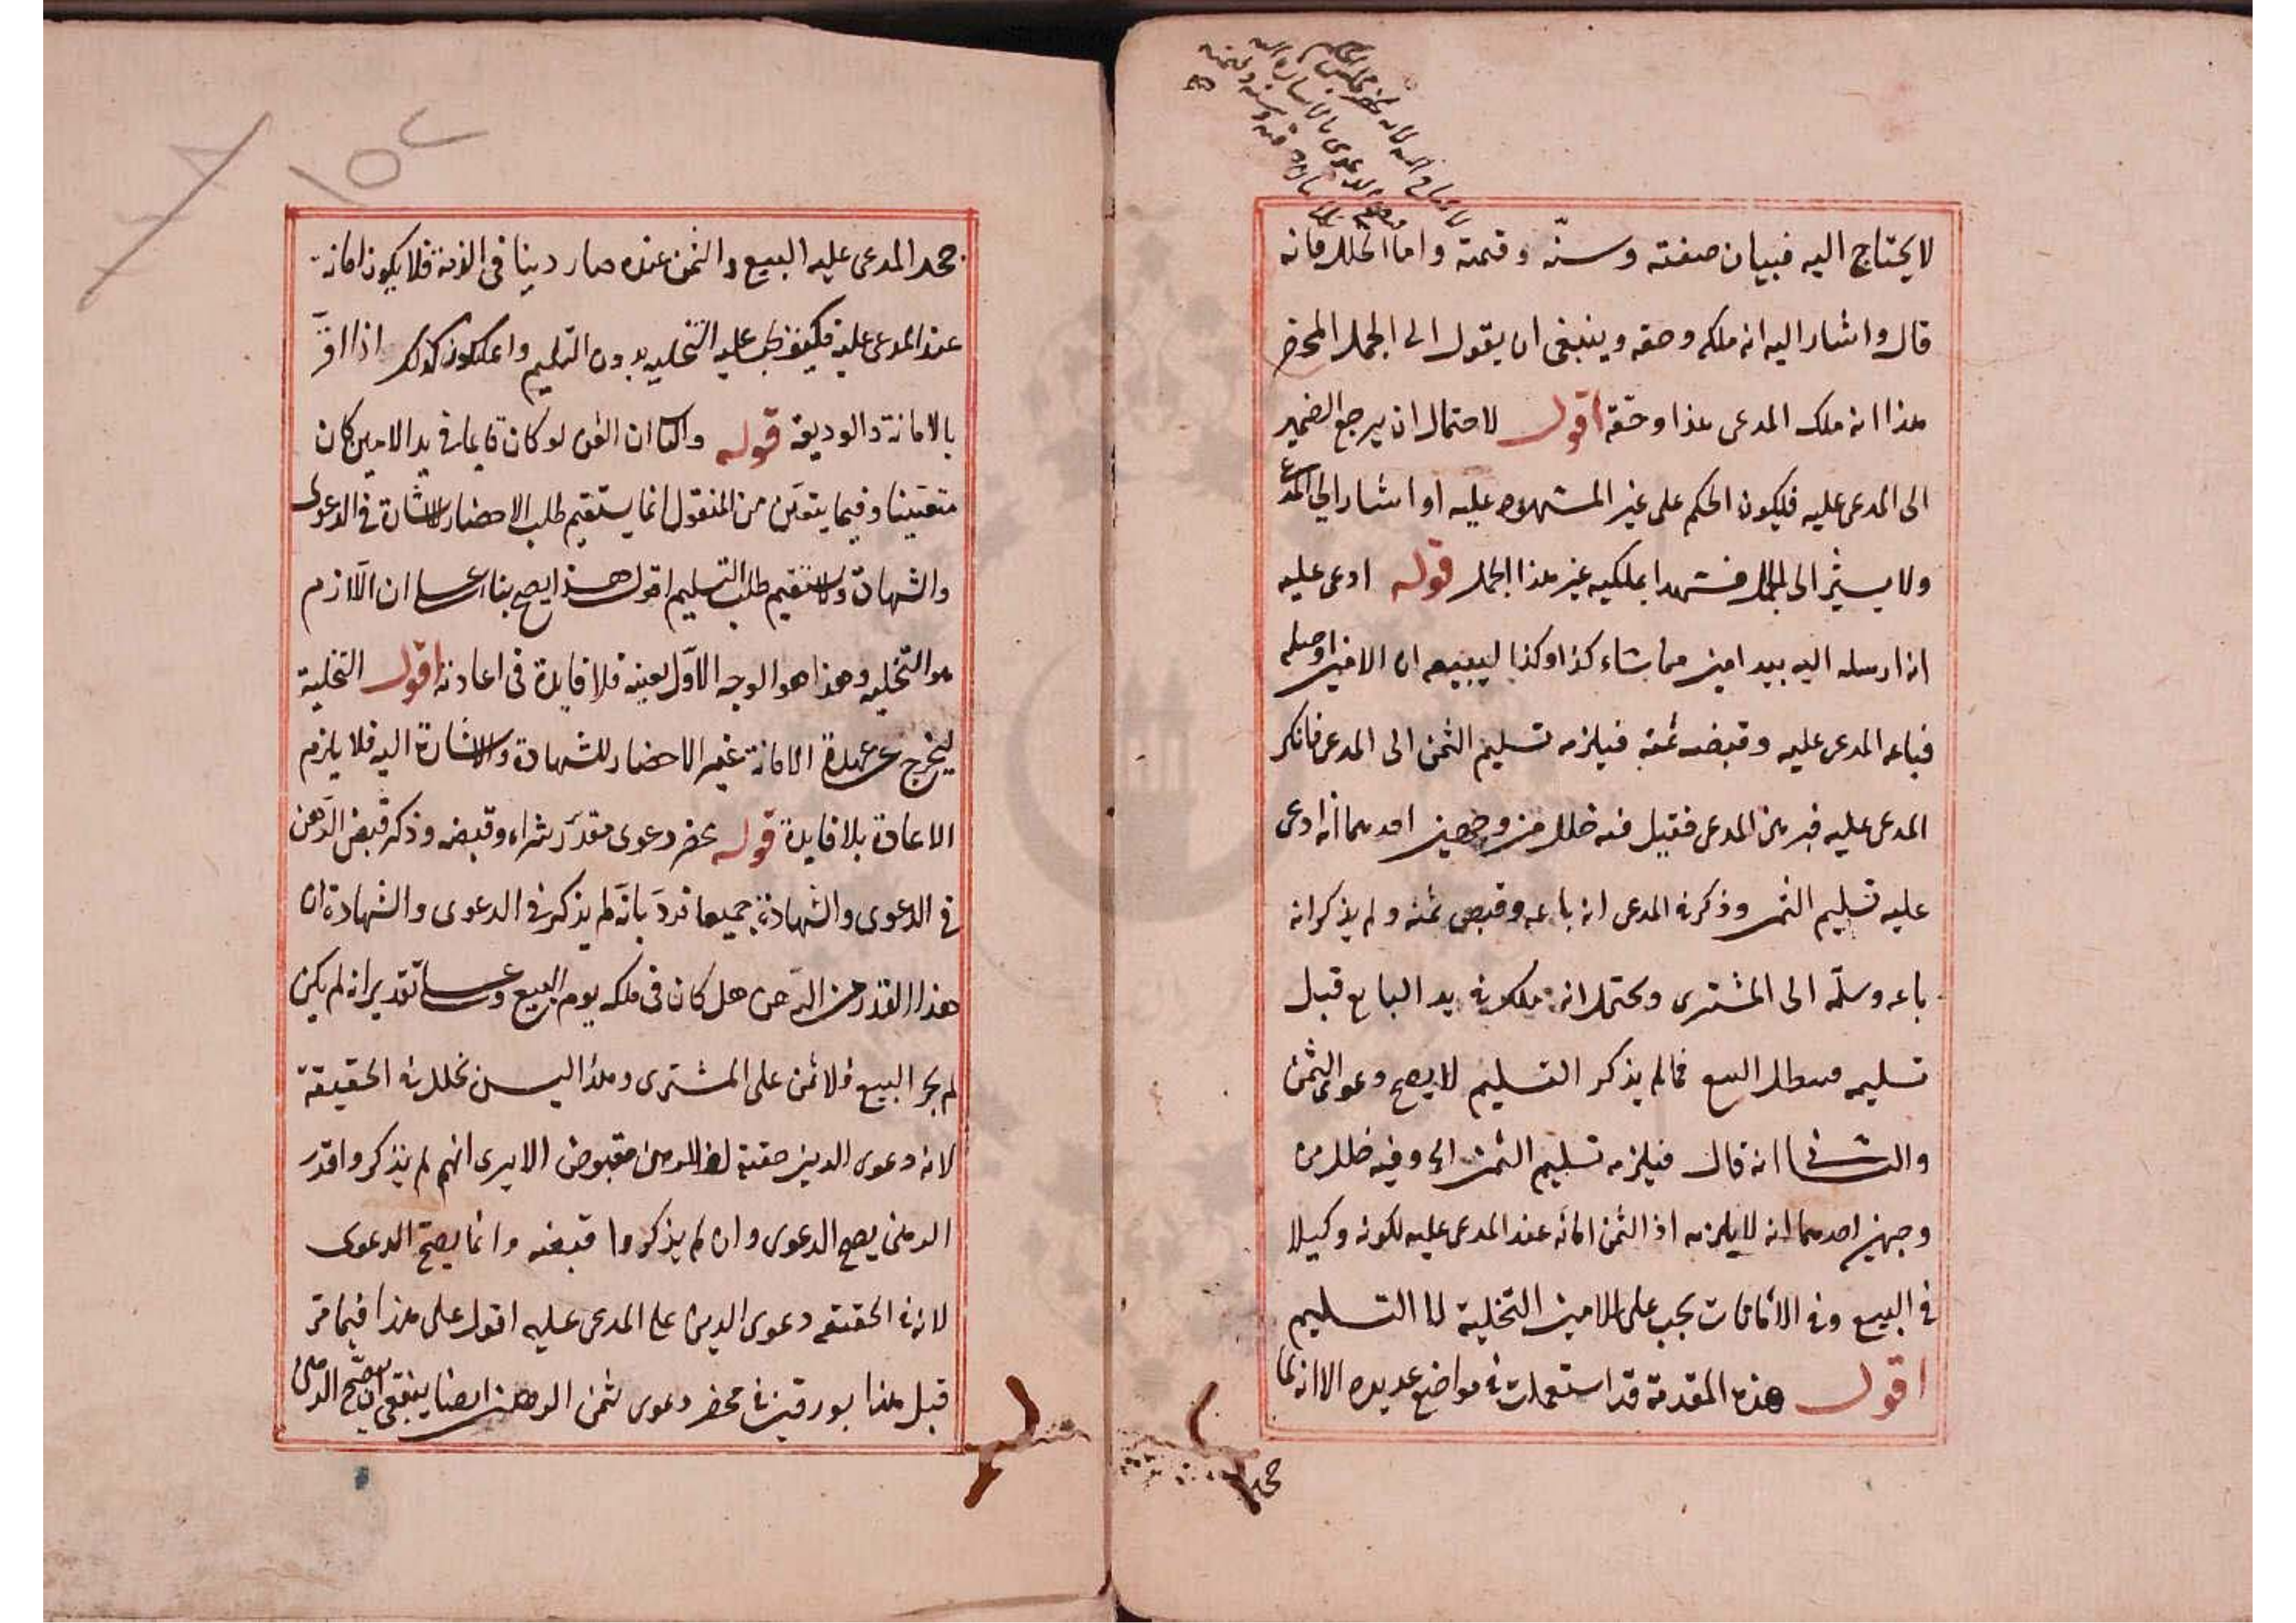 لا يحتاج اليه لانه يحضر مجلس الحكم
لا يحتاج اليه فبيان صفته وسنّه وقيمته واما الخلل فانه
قال واشار اليه انه ملكه وحقه وينبغى ان يقول الى الجمل المحضر
هذا انه ملك المدعى هذا وحقه اقول لاحتمال ان يرجع الضمير
الى المدعى عليه فيكون الحكم على غير المشهود عليه او اشار الى المدعى
ولا يشير الى الجمل فشهدا بملكيه غير هذا الجمل قوله ادعى عليه
انه ارسله اليه بيد امين مما شاء كذا وكذا ليبيعه ان الامين اوصله
فباعه المدعى عليه وقبض ثمنه فيلزمه تسليم الثمن الى المدعى فانكر
المدعى عليه فبرهن المدعى فقيل فيه خلل من وجهين احدهما انه ادعى
عليه تسليم الثمن وذكر في المدعى انه باعه وقبض ثمنه ولم يذكر انه
باعه وسلّمه الى المشترى ويحتمل انه هلك في يد البايع قبل
تسليمه فبطل البيع فما لم يذكر التسليم لا يصح دعوى الثمن
والثانى انه قال فيلزمه تسليم الثمن الى وفيه خلل من
وجهين احدهما انه لا يلزمه اذ الثمن امانة عند المدعى عليه لكونه وكيلا
في البيع وفي الأمانات يجب على الامين التخلية لا التسليم
اقول هذه المقدمة قد استعملت في مواضع عديده الا انه لما
جحد
جحد المدعى عليه البيع والثمن عنده صار دينا فى الذمة فلا يكون امانة
عند المدعى عليه فكيف يجب عليه التخليه بدون التسليم واعلم كذلك اذا اقرّ
بالامانة والوديعة قوله والثانى ان الثمن لو كان قايما في يد الامين كان
متعيّنا وفيما يتعيّن من المنقول انما يستقيم طلب الاحضار للاشارة في الدعوى
والشهادة ولا يستقيم طلب التسليم اقول هذا يصح بناء على ان اللازم
هو التخليه وهذا هو الوجه الاوّل بعينه فلا فايدة فى اعادته اقول التخلية
ليخرج عن عهدة الامانة غير الاحضار للشهادة والاشارة اليه فلا يلزم
الاعادة بلا فايدة قوله محضر دعوى مقدّر بشراء وقبضه وذكر قبض الدّهن
في الدعوى والشهادة جميعا فردّ بانّه لم يذكر في الدعوى والشهادة ان
هذا القدر من الدّهن هل كان فى ملكه يوم البيع وعلى تقدير انه لم يكن
لم يجز البيع فلا ثمن على المشترى وهذا ليس بخلل في الحقيقة
لانه دعوى الدين حقيقة لان الدهن مقبوض الا يرى انهم لم يذكروا قدر
الدهن يصح الدعوى وان لم يذكروا قبضه وانما يصحّ الدعوى
لانه في الحقيقه دعوى الدين على المدعى عليه اقول على هذا فيما مرّ
قبل هذا بورقين في محضر دعوى ثمن الدهن ايضا ينبغى ان يصحّ الدعوى
١٥٢